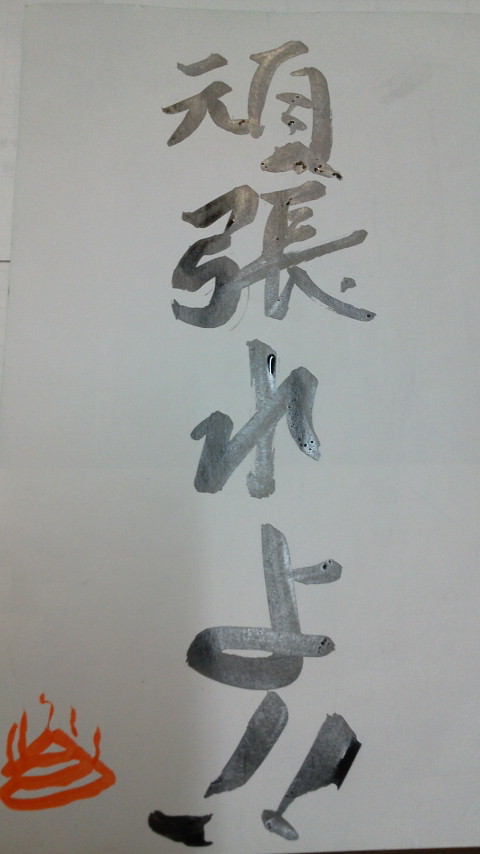 頑張れよ!!